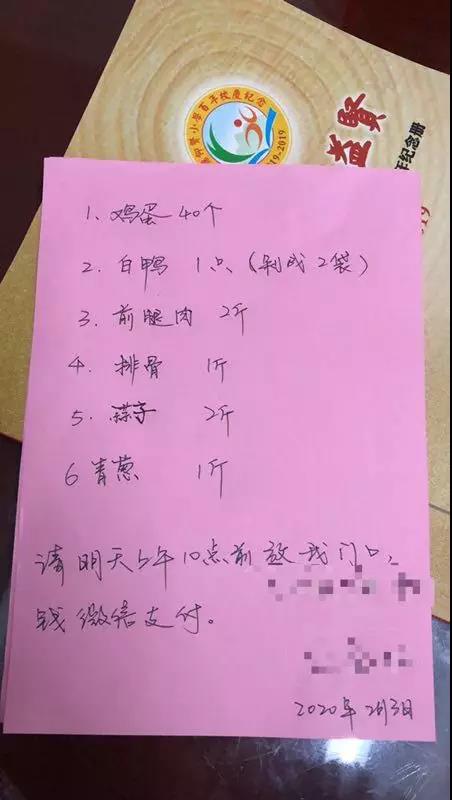 小学百年校庆纪念
9-2019
贤
年纪念册
19
1、鸡蛋 40个
2、白鸭 1只（剁成2袋）
3、前腿肉 2斤
4、排骨 1斤
5、蒜子 2斤
6 青葱 1斤
请明天上午10点前放我门口，
钱微信支付。
2020年2月3日